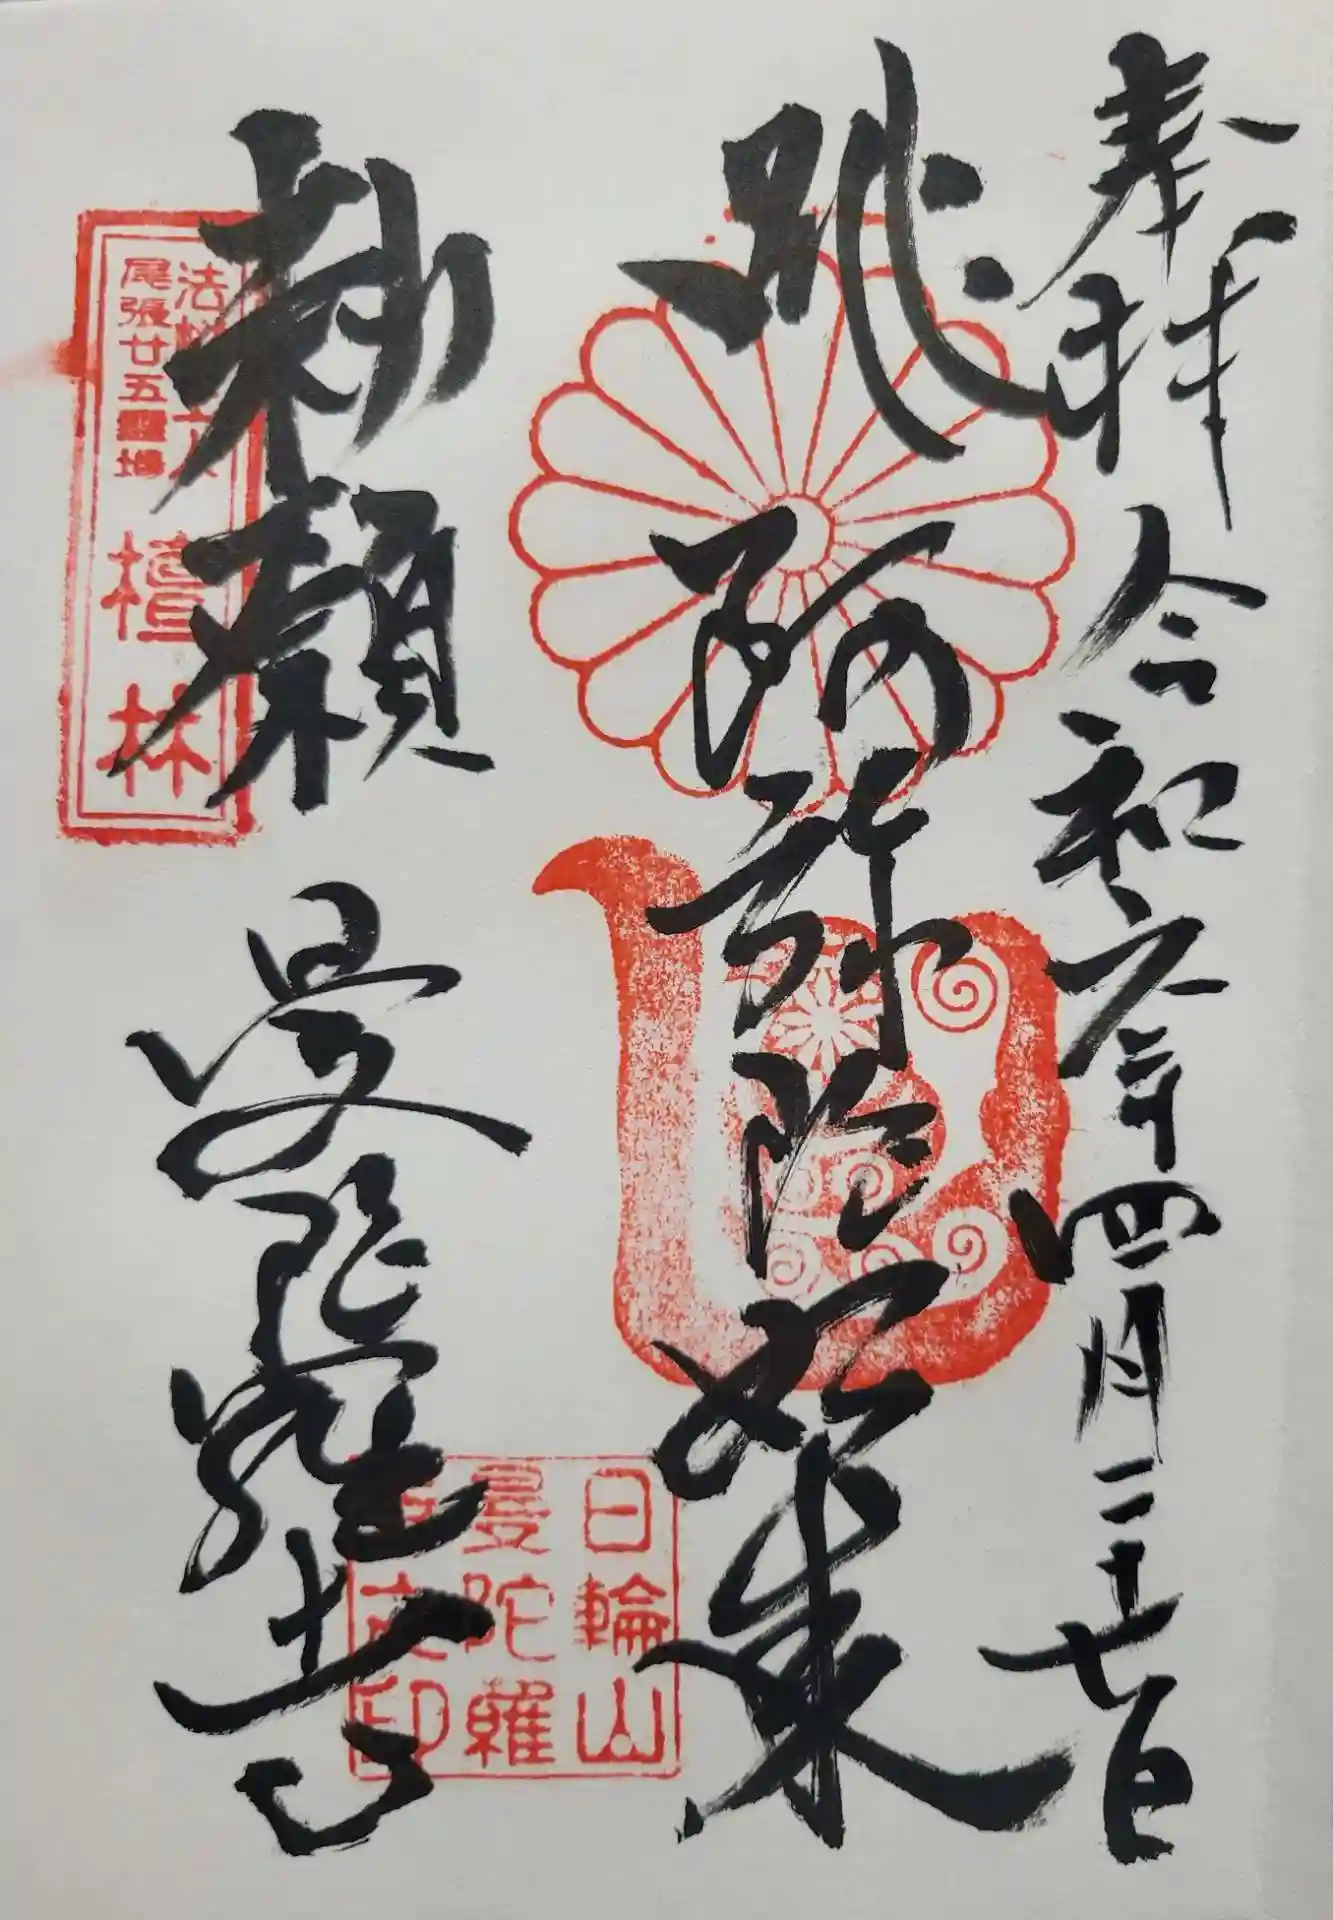 奉拝 令和六年四月二十七日
跳阿弥陀如来
勅願 曼陀羅寺
尾張廿五霊場
檀林
日輪山
曼陀羅
印